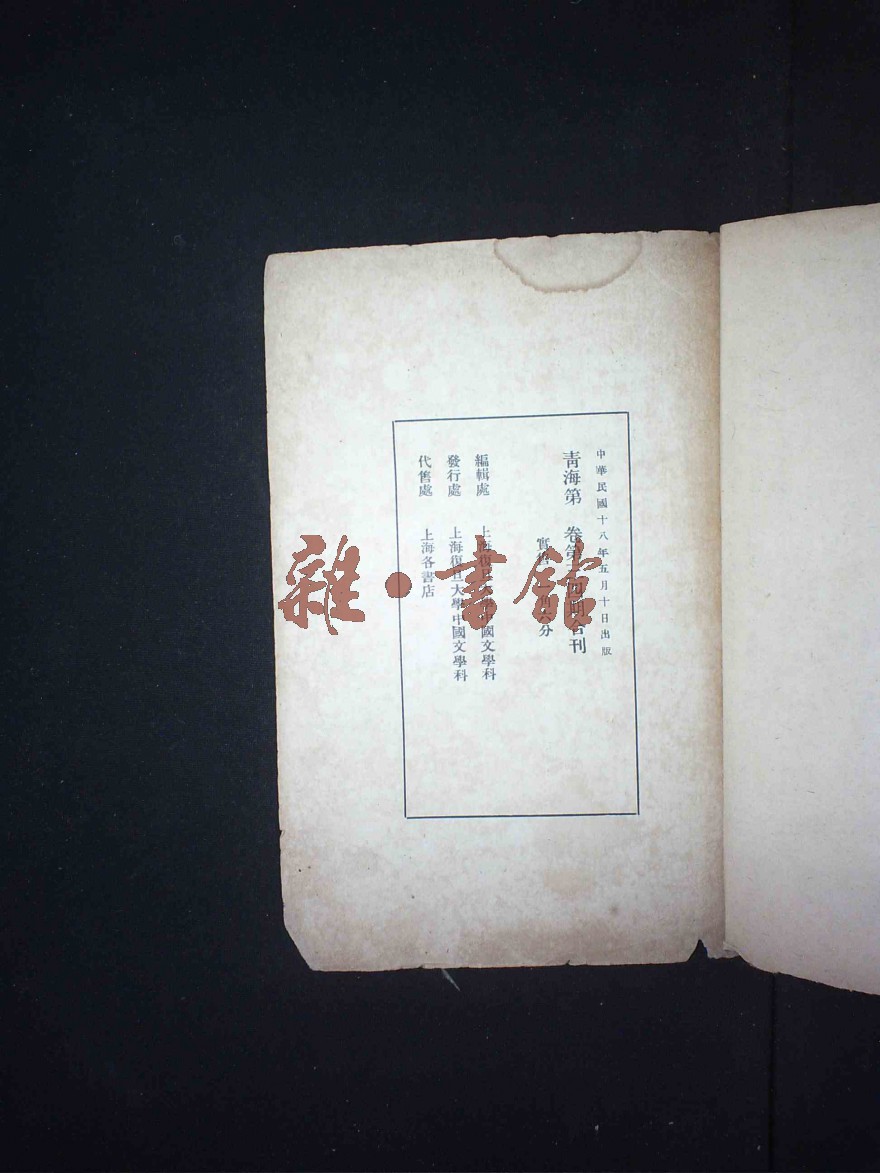 中華民國十八年五月十日出版
青海第 卷第三四期合刊
實 分
編輯處 上海復旦大學中國文學科
發行處 上海復旦大學中國文學科
代售處 上海各書店
雜·書館